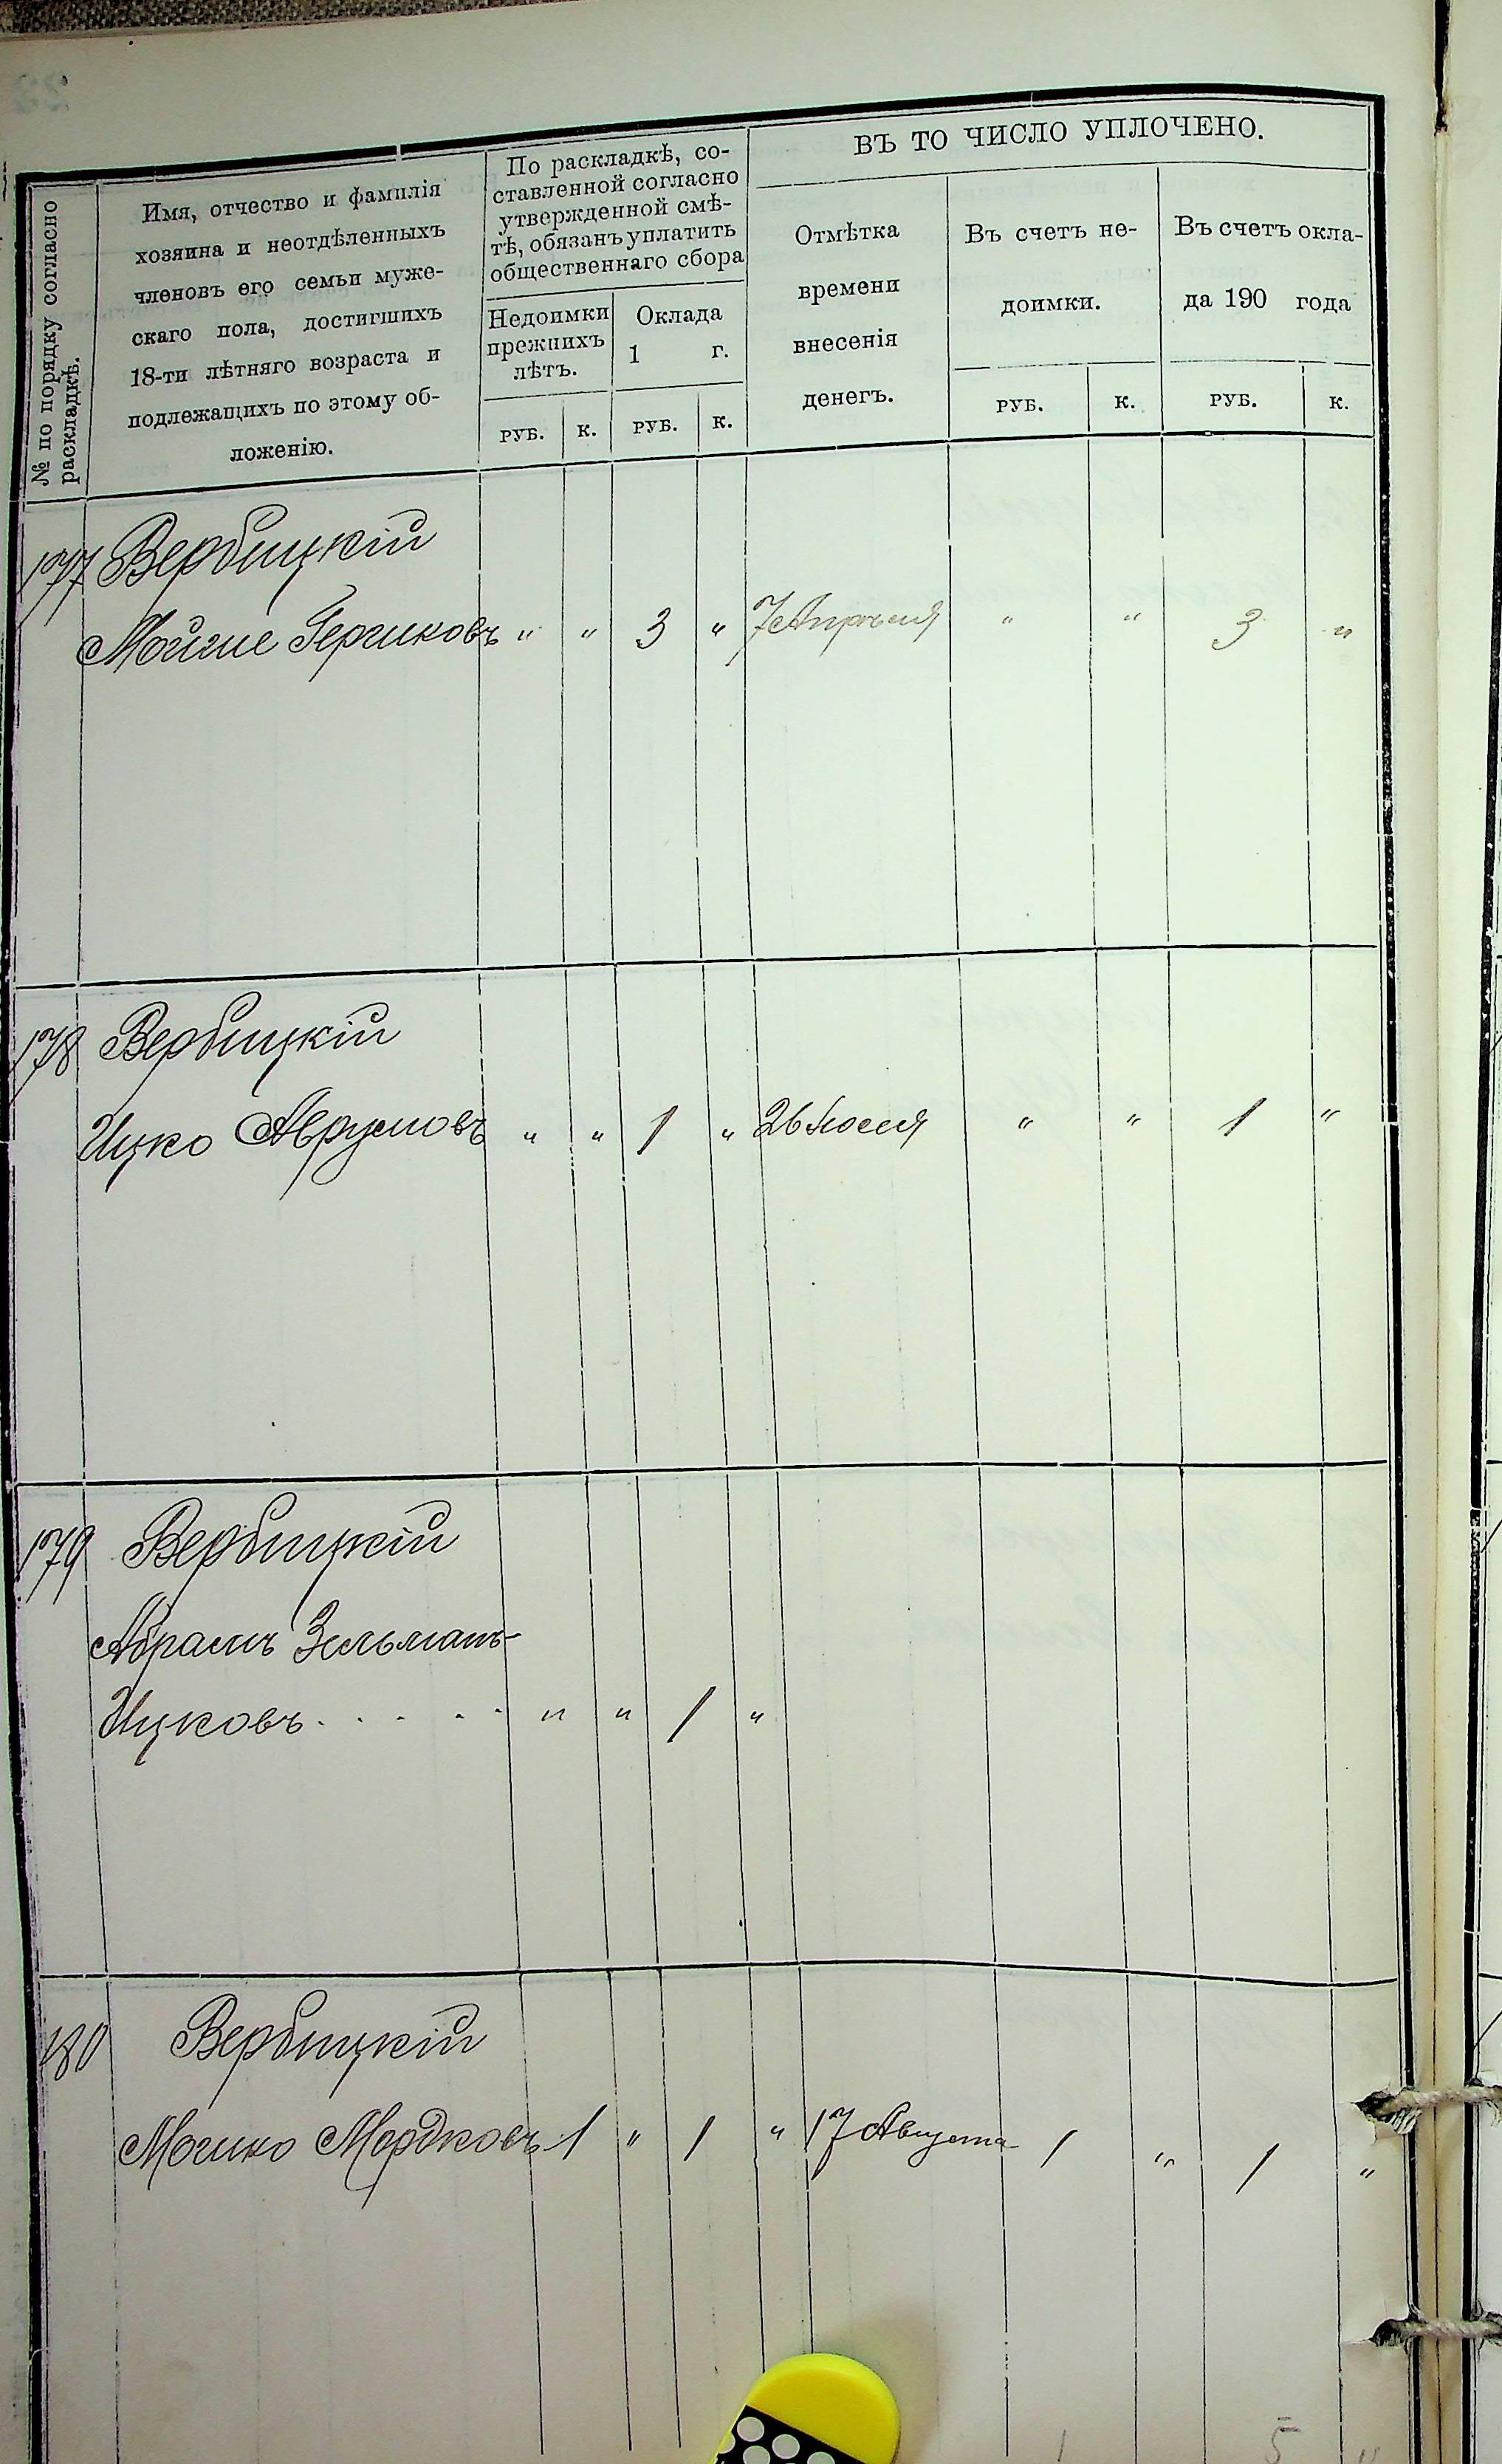 ВЪ ТО ЧИСЛО УПЛОЧЕНО.
№ по порядку согласно
раскладкѣ.
Имя, отчество и фамилія
хозяина и неотдѣленныхъ
членовъ его семьи муже-
скаго пола, достигшихъ
18-ти лѣтняго возраста и
подлежащихъ по этому об-
ложенію.
По раскладкѣ, со-
ставленной согласно
утвержденной смѣ-
тѣ, обязанъ уплатить
общественнаго сбора
Недоимки
прежнихъ
лѣтъ.
Оклада
1 г.
Отмѣтка
времени
внесенія
денегъ.
Въ счетъ не-
доимки.
Въ счетъ окла-
да 190 года
РУБ. К. РУБ. К. РУБ. К. РУБ. К.
177 Вербицкій
Мойше Гершковъ " " 3 " 7 Апрѣля " " 3 "
178 Вербицкій
Ицко Аврумовъ " " 1 " 26 Іюля " " 1 "
179 Вербицкій
Абрамъ Зельманъ-
Ицковъ . . . . . " " 1 "
180 Вербицкій
Мошко Мордковъ 1 " 1 " 17 Августа 1 " 1 "
1 5 "